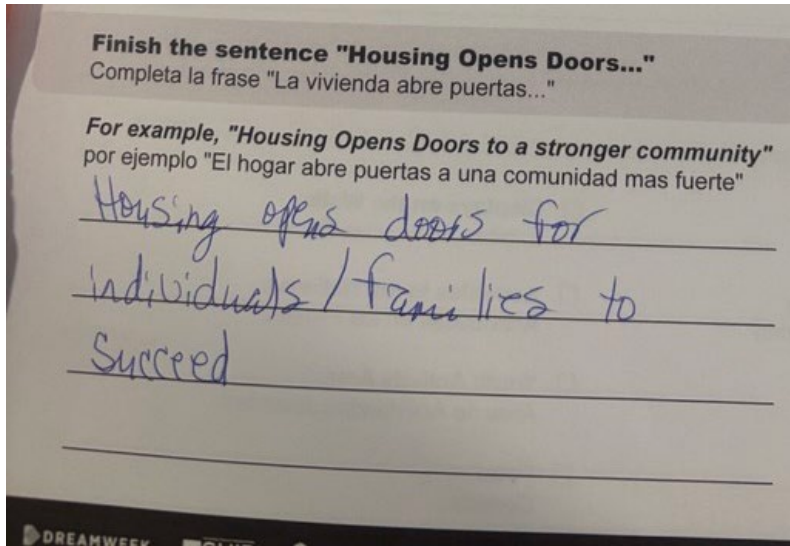 Finish the sentence "Housing Opens Doors..."
Completa la frase "La vivienda abre puertas..."
For example, "Housing Opens Doors to a stronger community"
por ejemplo "El hogar abre puertas a una comunidad mas fuerte"
Housing opens doors for
individuals/families to
Succeed
DREAMWEEK